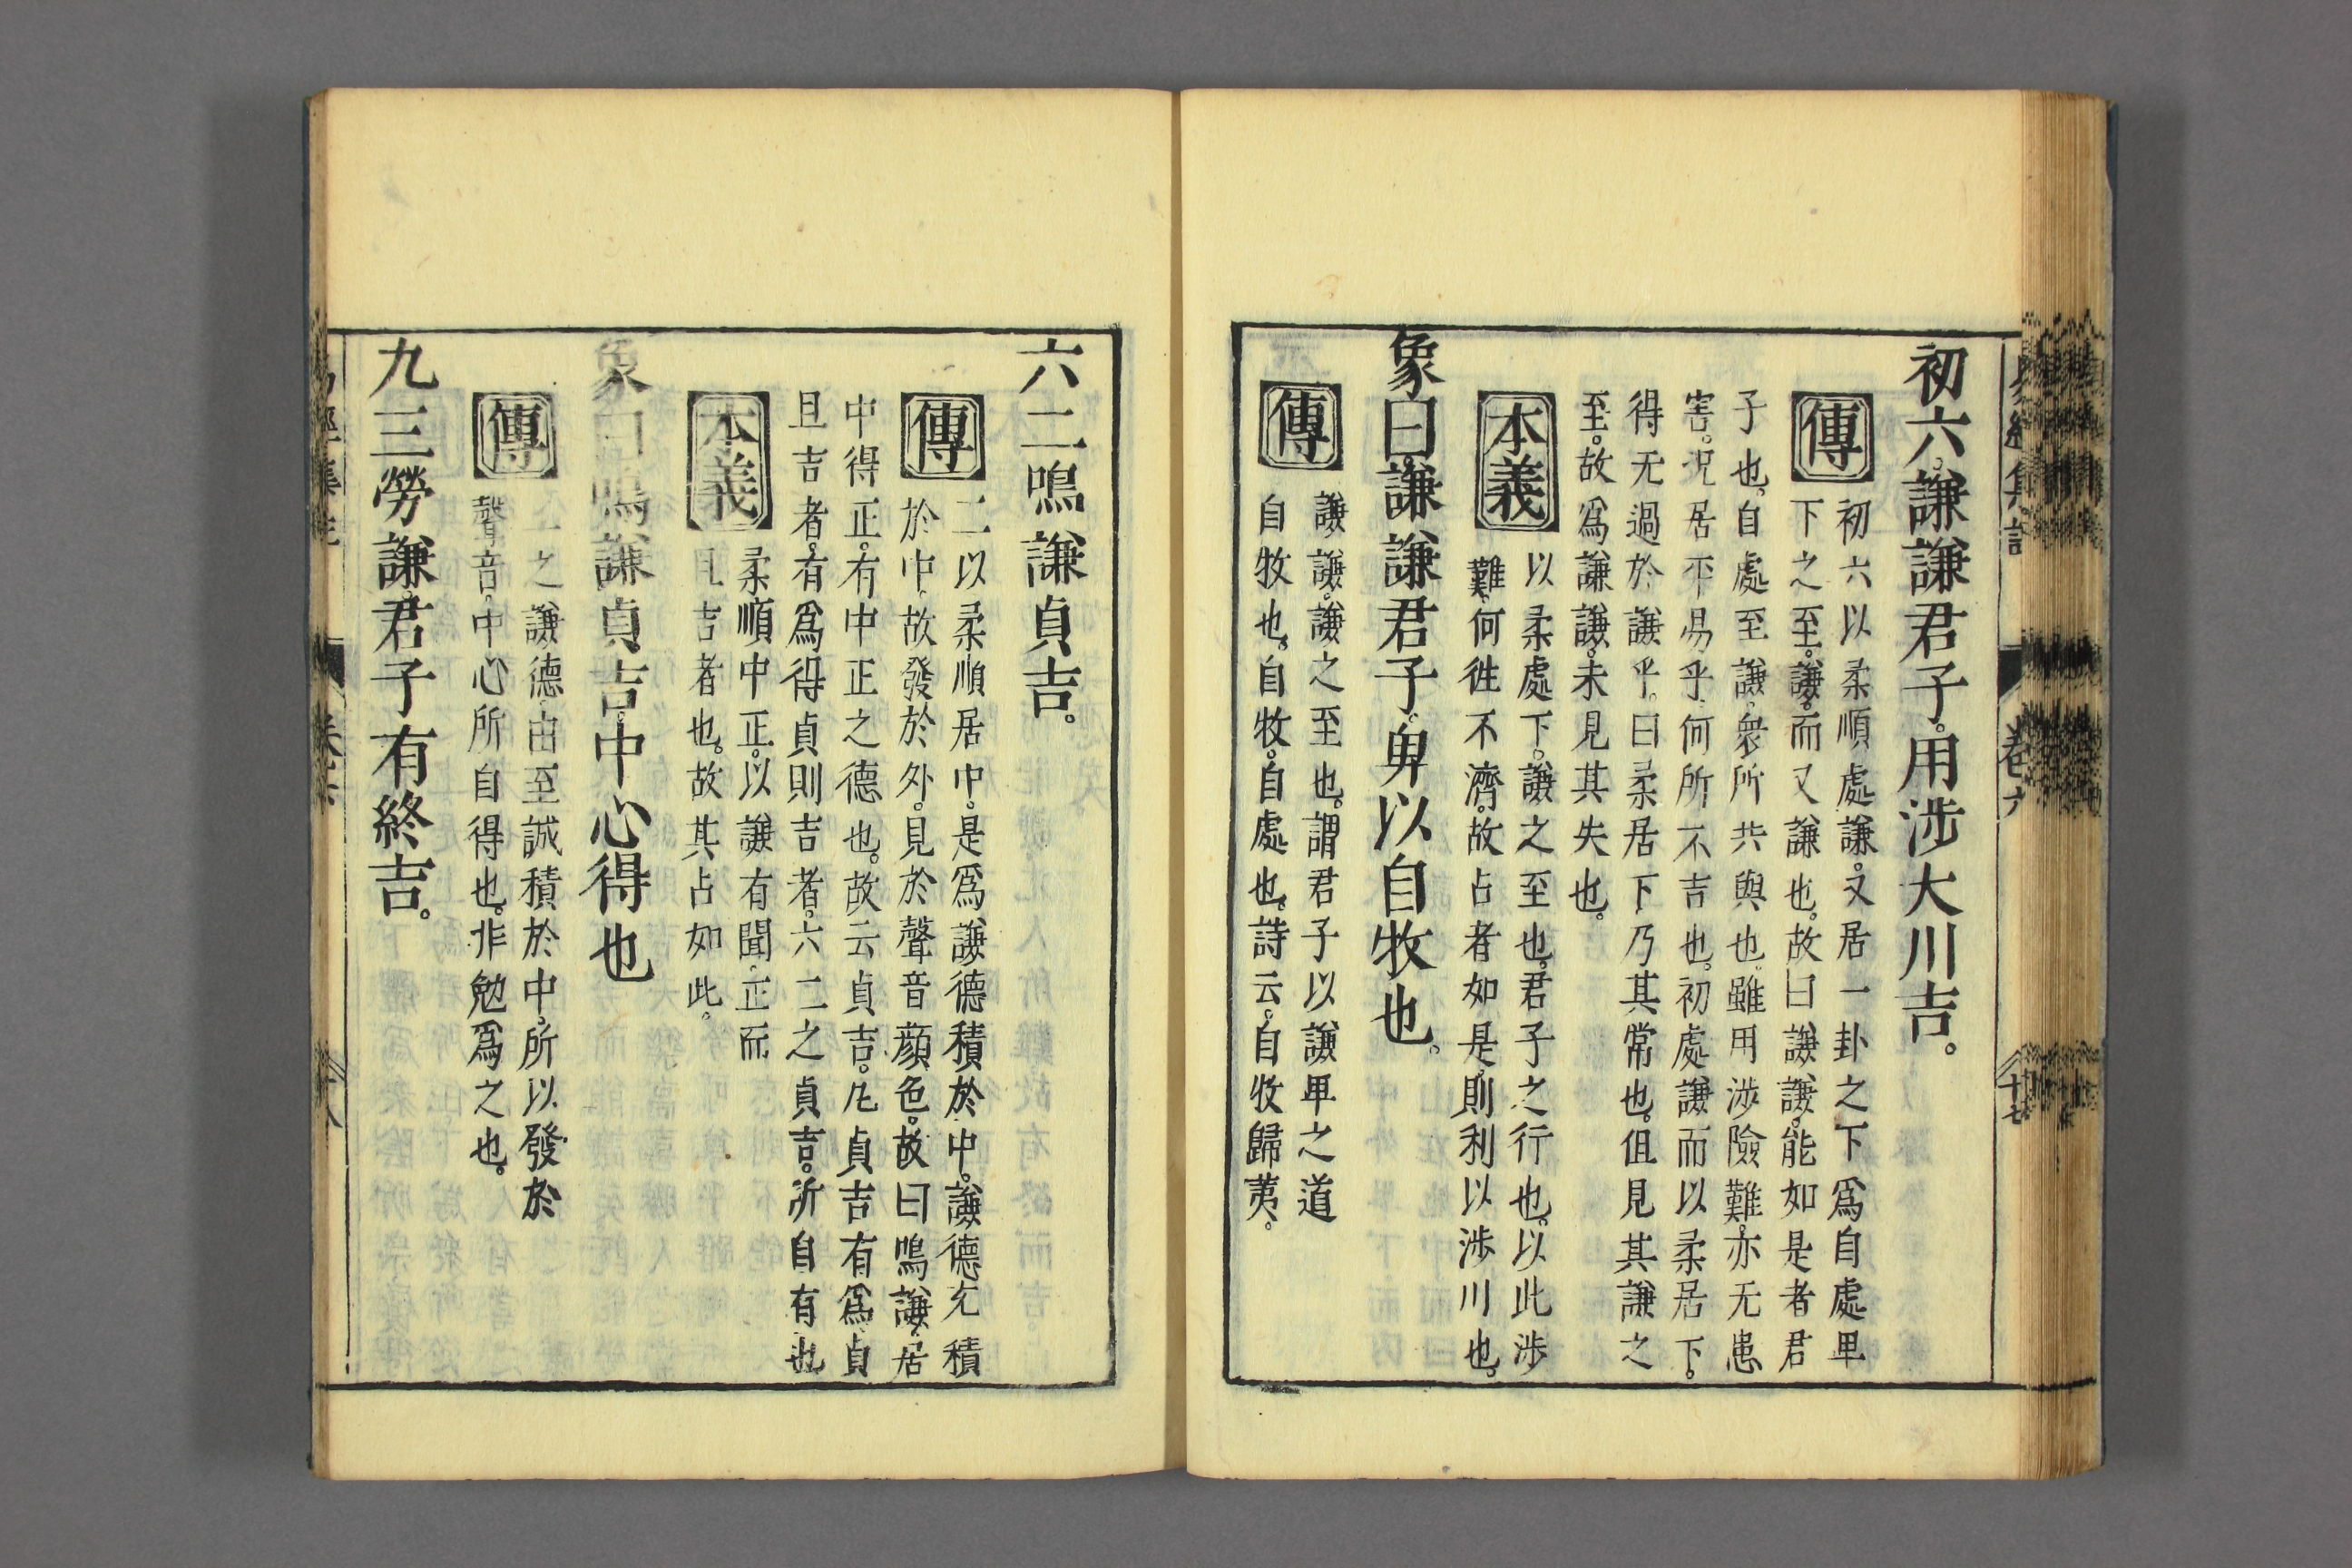 初六。謙謙君子。用涉大川吉。
傳
初六以柔順處謙。又居一卦之下爲自處卑
下之至。謙。而又謙也。故曰謙謙。能如是者君
子也。自處至謙。衆所共與也。雖用涉險難。亦无患
害。况居平易乎。何所不吉也。初處謙而以柔居下。
得无過於謙乎。曰柔居下乃其常也。但見其謙之
至。故爲謙謙。未見其失也。
本義
以柔處下。謙之至也。君子之行也。以此涉
難。何徃不濟。故占者如是。則利以涉川也。
象曰謙謙君子。卑以自牧也。
傳
謙謙。謙之至也。謂君子以謙卑之道
自牧也。自牧。自處也。詩云。自牧歸荑。
卷六
十七
六二鳴謙貞吉。
傳
二以柔順居中。是爲謙德積於中。謙德充積
於中。故發於外。見於聲音顔色。故曰鳴謙。居
中得正。有中正之德也。故云貞吉。凡貞吉有爲貞
且吉者。有爲得貞則吉者。六二之貞吉。所自有也
本義
柔順中正。以謙有聞。正而
且吉者也。故其占如此。
象曰鳴謙貞吉。中心得也
傳
二之謙德。由至誠積於中。所以發於
聲音。中心所自得也。非勉爲之也。
九三勞謙。君子有終吉。